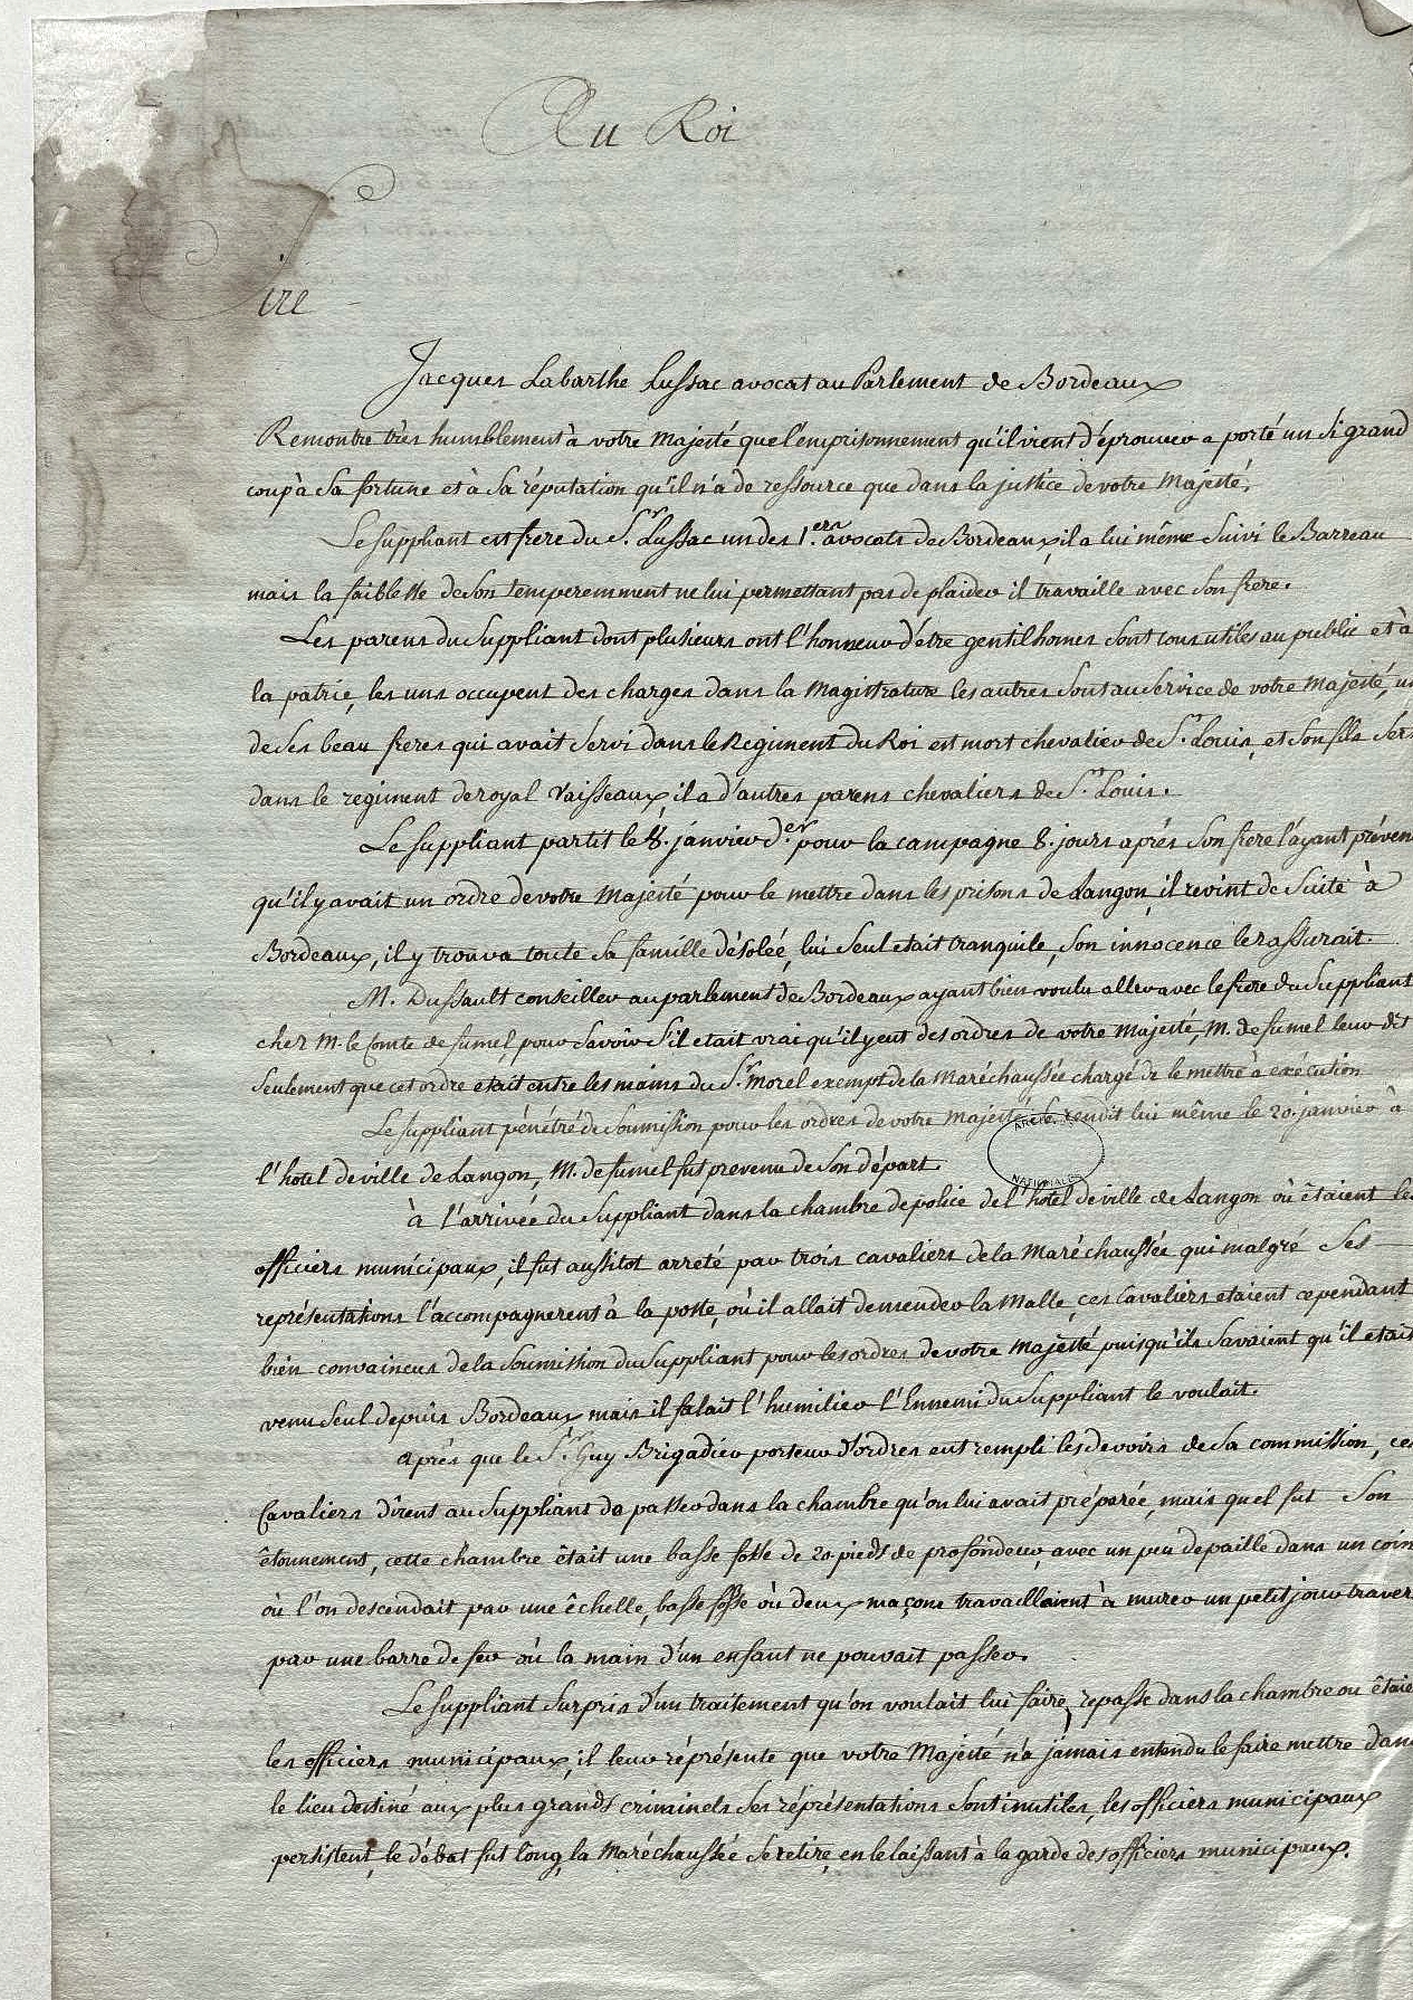 Au Roi
Sire
Jacques Labarthe Lussac avocat au Parlement de Bordeaux
Remontre très humblement à votre Majesté que l'emprisonnement qu'il vient d'éprouver a porté un si grand
coup à sa fortune et à sa réputation qu'il n'a de ressource que dans la justice de votre Majesté.
Le suppliant est frere du S.r Lussac un des 1.ers avocats de Bordeaux, il a lui même suivi le Barreau
mais la faiblesse de son temperemment ne lui permettant pas de plaider il travaille avec son frere.
Les parens du suppliant dont plusieurs ont l'honneur d'être gentilhomes sont tous utiles au public et à
la patrie, les uns occupent des charges dans la Magistrature les autres sont au service de votre Majesté, un
de ses beau freres qui avait servi dans le Regiment du Roi est mort chevalier de S.t Louis, et son fils ser
dans le regiment de royal Vaisseaux, il a d'autres parens chevaliers de S.t Louis.
Le suppliant partit le 8. janvier d.er pour la campagne 8. jours aprés son frere l'ayant préven
qu'il y avait un ordre de votre Majesté pour le mettre dans les prisons de Langon, il revint de suite à
Bordeaux, il y trouva toute sa famille désolée, lui seul etait tranquile, son innocence le rassurait.
M. Dussault conseiller au parlement de Bordeaux ayant bien voulu aller avec le frere du suppliant
chez M. le Comte de fumel, pour savoir s'il etait vrai qu'il y eut des ordres de votre Majesté, M. de fumel leur dit
seulement que cet ordre etait entre les mains du S.r Morel exempt de la Maréchaussée chargé de le mettre à exécution
Le suppliant pénétré de soumission pour les ordres de votre Majesté se rendit lui même le 20. janvier à
l'hotel de ville de Langon, M. de fumel fut prevenu de son départ.
ARCH. NATIONALES
à l'arrivée du suppliant dans la chambre de police de l'hotel de ville de Langon où étaient les
officiers municipaux, il fut aussitot arreté par trois cavaliers de la Maréchaussée qui malgré ses
représentations l'accompagnerent à la poste, où il allait demender la Malle, ces Cavaliers etaient cependant
bien convaincus de la soumission du suppliant pour les ordres de votre Majesté puisqu'ils savaient qu'il etait
venu seul depuis Bordeaux mais il falait l'humilier l'Ennemi du suppliant le voulait.
après que le S.r Guy Brigadier porteur d'ordres eut rempli les devoirs de sa commission, ces
Cavaliers dirent au suppliant de passer dans la chambre qu'on lui avait préparée, mais quel fut son
étonnement, cette chambre était une basse fosse de 20. pieds de profondeur, avec un peu de paille dans un coin
où l'on descendait par une échelle, basse fosse où deux maçons travaillaient à murer un petit jour travers
par une barre de fer où la main d'un enfant ne pouvait passer.
Le suppliant surpris d'un traitement qu'on voulait lui faire, repasse dans la chambre ou étaie
les officiers municipaux, il leur réprésente que votre Majesté n'a jamais entendu le faire mettre dans
le lieu destiné aux plus grands criminels ses réprésentations sont inutiles, les officiers municipaux
persistent, le débat fut long, la Maréchaussée se retire, en le laissant à la garde des officiers municipaux.